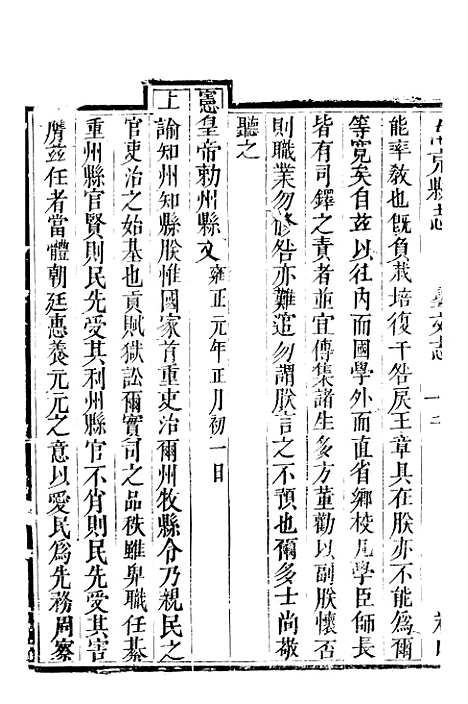 能率教也旣負栽培復干咎戾王章具在朕亦不能爲爾
等寬矣自茲以往內而國學外而直省鄉校凡學臣師長
皆有司鐸之責者並宜傳集諸生多方董勸以副朕懷否
則職業勿修咎亦難逭勿謂朕言之不預也爾多士尚敬
聽之
憲皇帝勅州縣文 雍正元年正月初一日
上諭知州知縣朕惟國家首重吏治爾州牧縣令乃親民之
官吏治之始基也貢賦獄訟爾實司之品秩雖卑職任綦
重州縣官賢則民先受其利州縣官不肖則民先受其害
膺茲任者當體朝廷惠養元元之意以愛民爲先務周察